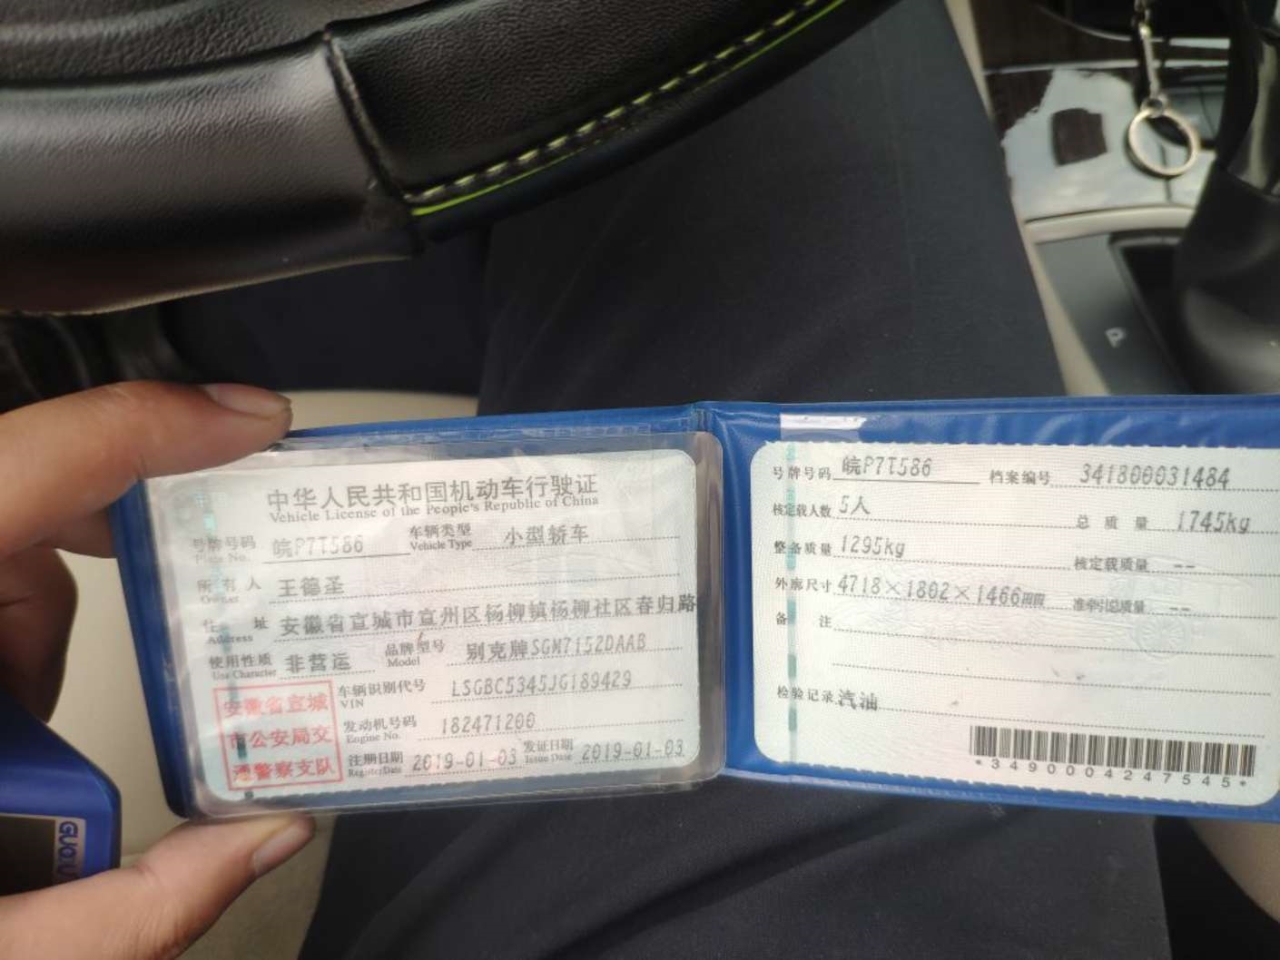 中华人民共和国机动车行驶证
Vehicle License of the People's Republic of China
号牌号码 皖P7T586 车辆类型 小型轿车
Plate No. Vehicle Type
所有人 王德圣
Owner
住址 安徽省宣城市宣州区杨柳镇杨柳社区春归路
Address
使用性质 非营运 品牌型号 别克牌SGM7152DAAB
Use Character Model
车辆识别代号 LSGBC5345JG189429
VIN
发动机号码 182471200
Engine No.
注册日期 2019-01-03 发证日期 2019-01-03
Register Date Issue Date
安徽省宣城
市公安局交
通警察支队
号牌号码 皖P7T586 档案编号 341800031484
核定载人数 5人 总质量 1745kg
整备质量 1295kg 核定载质量 --
外廓尺寸 4718×1802×1466mm 准牵引总质量 --
备注
检验记录 汽油
*3490004247545*
P
GUO